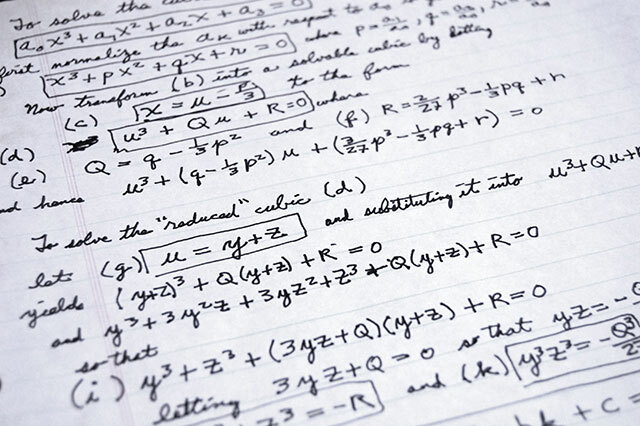 To solve the cu
a₀x³ + a₁x² + a₂x + a₃ = 0
first normalize the aₖ with respect to
x³ + px² + qx + r = 0 where p = a₁/a₀, q = a₂/a₀, r =
Now transform (b) into a solvable cubic by letting
(c) x = u − p/3 to the form
(d) u³ + Qu + R = 0 where
(e) Q = q − 1/3 p² and (f) R = 2/27 p³ − 1/3 pq + r
and hence u³ + (q − 1/3 p²) u + (2/27 p³ − 1/3 pq + r) = 0
To solve the "reduced" cubic (d)
let (g) u = y + z and substituting it into u³ + Qu +
yields (y+z)³ + Q(y+z) + R = 0
and y³ + 3y²z + 3yz² + z³ + Q(y+z) + R = 0
so that
(i) y³ + z³ + (3yz + Q)(y+z) + R = 0
letting 3yz + Q = 0 so that yz = −
z³ = −R and (k) y³z³ = −Q³/
+ c =